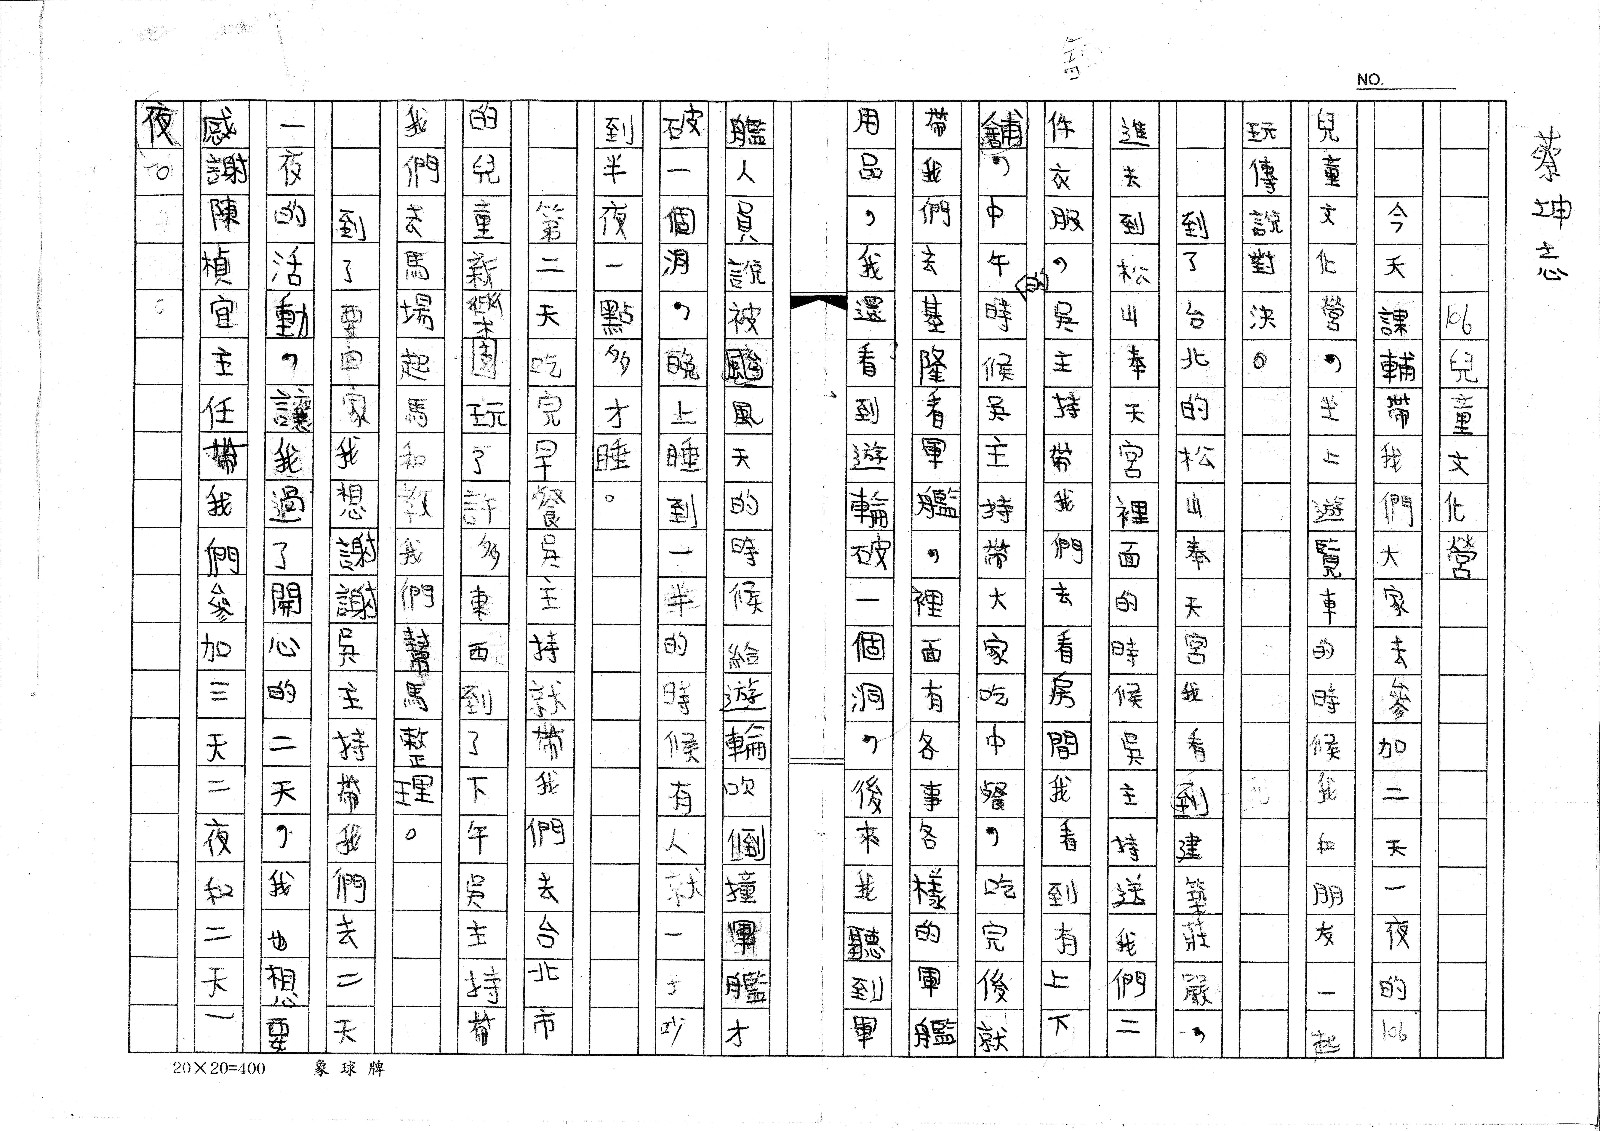 NO.
蔡坤志
106兒童文化營
今天課輔帶我們大家去參加二天一夜的106
兒童文化營,坐上遊覽車的時候我和朋友一起
玩傳說對決。
到了台北的松山奉天宮我看到建築莊嚴,
進去到松山奉天宮裡面的時候吳主持送我們二
件衣服,吳主持帶我們去看房間我看到有上下
鋪,中午的時候吳主持帶大家吃中餐,吃完後就
帶我們去基隆看軍艦,裡面有各事各樣的軍艦
用品,我還看到遊輪破一個洞,後來我聽到軍
艦人員說被颱風天的時候給遊輪吹倒撞軍艦才
破一個洞,晚上睡到一半的時候有人就一ㄘ吵
到半夜一點多才睡。
第二天吃完早餐吳主持就帶我們去台北市
的兒童新樂園玩了許多東西到了下午吳主持帶
我們去馬場起馬和教我們幫馬整理。
到了要回家我想謝謝吳主持帶我們去二天
一夜的活動,讓我過了開心的二天,我也想要
感謝陳楨宜主任帶我們參加三天二夜和二天一
夜。
20×20=400 象球牌